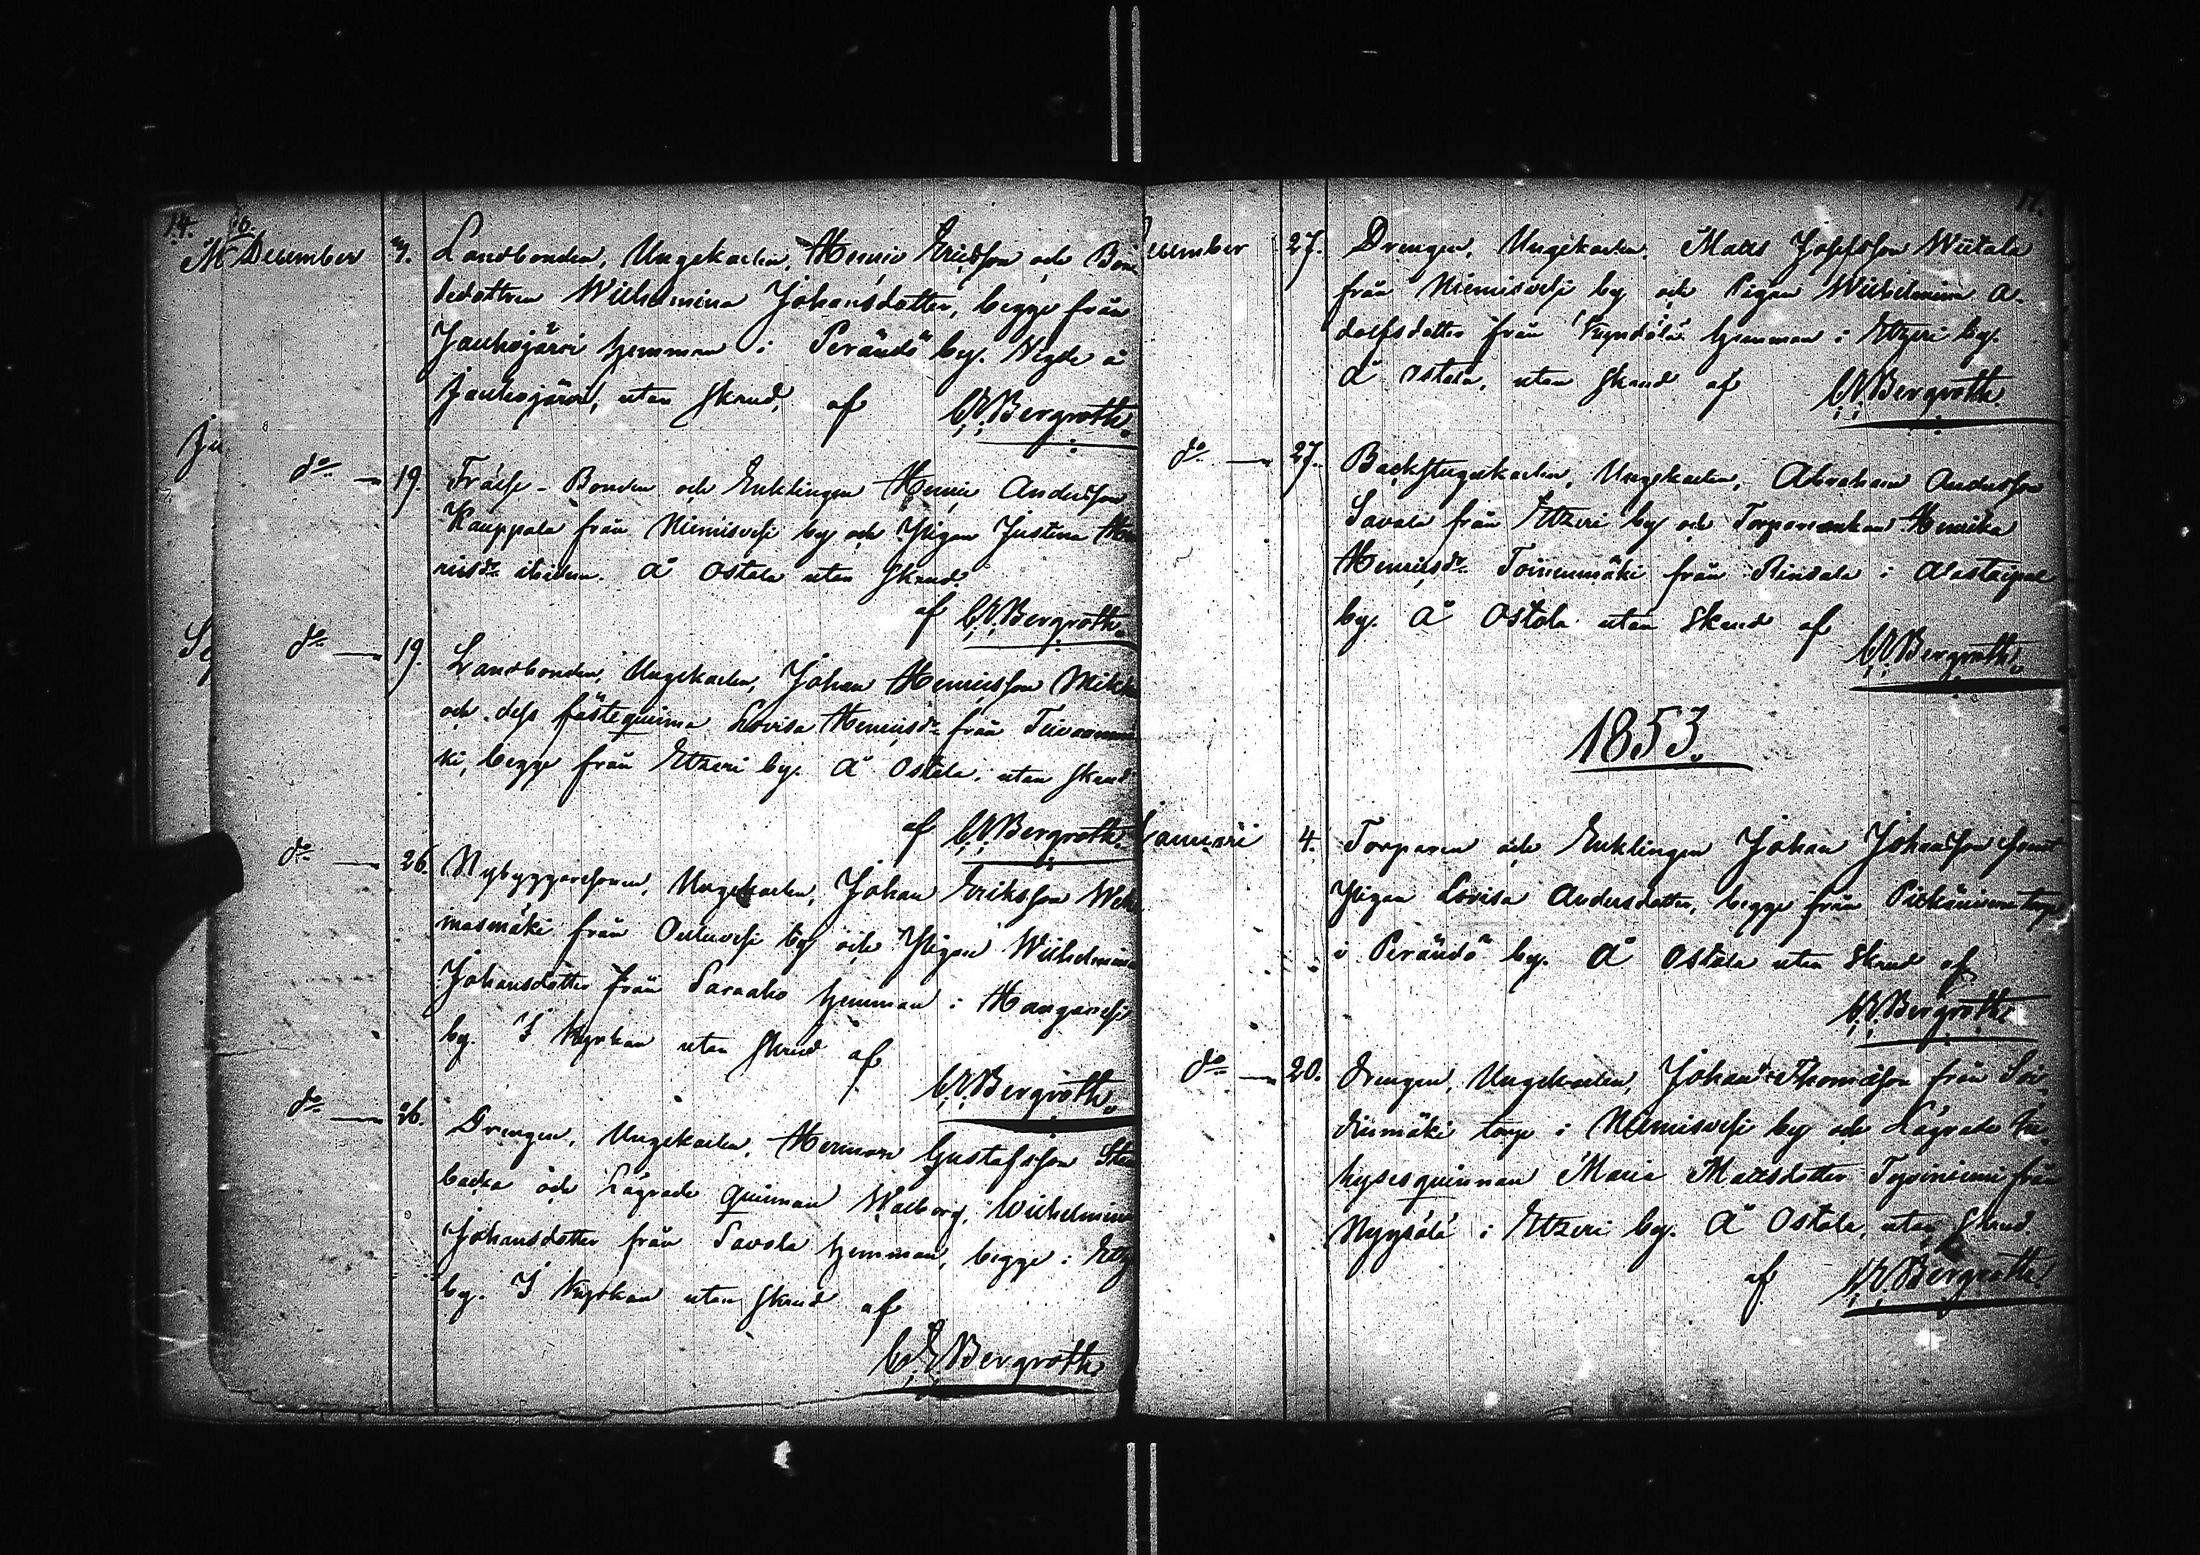 14.
16.
December 9. Landbonden, Ungekarlen, Henric Ericsson och Bon
dedottren Wilhelmina Johansdotter, begge från
Jauhojärvi hemman i Perändö by. Vigde å
Jauhojärvi, utan skrud, af CE Bergroth.
do — 19. Frälse-Bonden och Enklingen Henric Andersson
Kauppala från Niemisvesi by och Pigan Justina Hen
ricsdr ibidem. Å Ostola utan skrud.
af CE Bergroth.
do — 19. Landbonden, Ungekarlen, Johan Henricsson
och dess fästeqvinna Lovisa Henricsdr från
ki, begge från Etzeri by. Å Ostola, utan skrud
af CE Bergroth.
do — 26. Nybyggaresonen, Ungekarlen, Johan Eriksson
masmäki från by och Pigan Wilhelmina
Johansdotter från hemman i
by. I Kyrkan utan skrud af
CE Bergroth.
do — 26. Drengen, Ungekarlen, Herman Gustafsson Sten
backa och Lägrade qvinnan Walborg Wilhelmina
Johansdotter från Savola hemman, begge i Etz
by. I Kyrkan utan skrud af
CE Bergroth.
17.
ecember 27. Drengen, Ungekarlen, Matts Josefsson Wiitala
från Niemisvesi by och Pigan Wilhelmina A-
dolfsdotter från hemman i Etzeri by.
Å Ostola, utan skrud af CE Bergroth.
do — 27. Backstugukarlen, Ungekarlen, Abraham Andersson
Savola från Etzeri by och Torpareenkan Henrika
Henricsdr Toivenmäki från Rindala i Alastaipal
by. Å Ostola utan skrud af
CE Bergroth.
1853.
Januari 4. Torparen och Enklingen Johan Johansson samt
Pigan Lovisa Andersdotter, begge från torp
i Perändö by. Å Ostola utan skrud af
CE Bergroth.
do — 20. Drengen, Ungekarlen, Johan Thomasson från Soi-
dinmäki torp i Niemisvesi by och Lägrade In-
hysesqvinnan Maria Mattsdotter från
i Etzeri by. Å Ostola, utan skrud.
af CE Bergroth